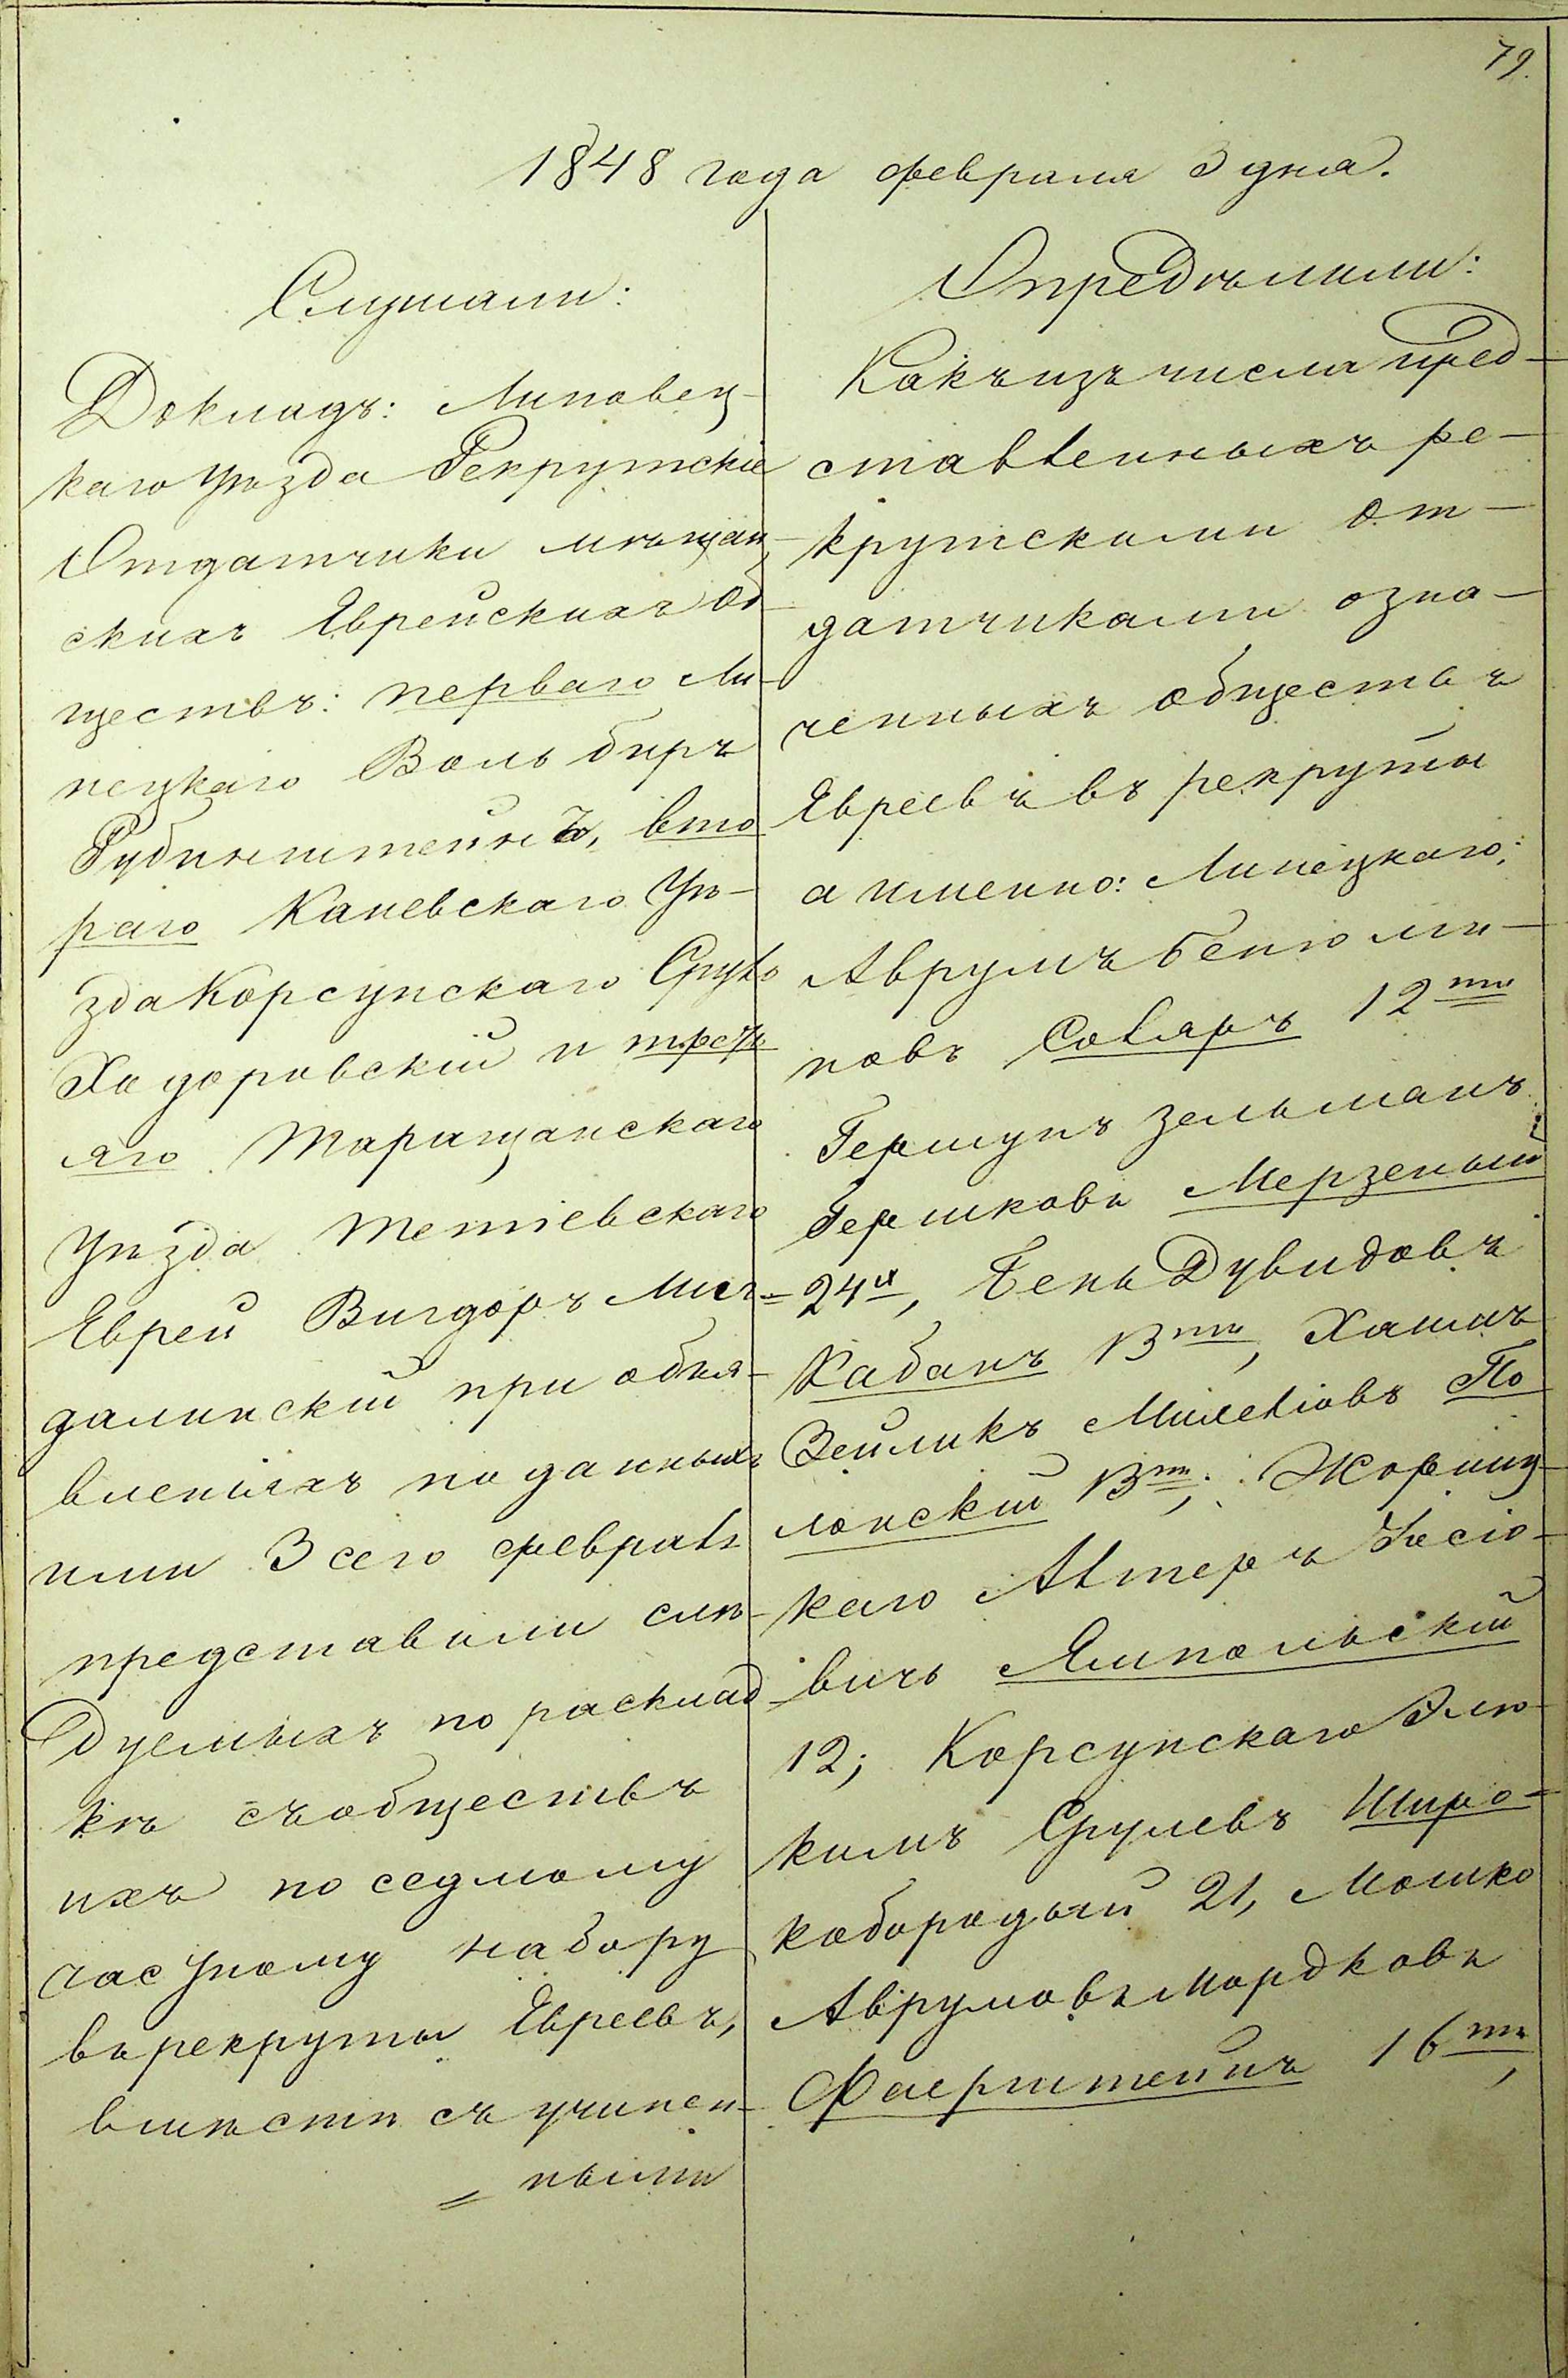 79.
1848 года февраля 3 дня.
Слушали:
Докладъ: Липовец-
каго уѣзда Рекрутскіе
Отдатчики мѣщан-
скихъ Еврейскихъ об-
ществъ: перваго Ли-
нецкаго Вольбиръ
Рубинштейнъ, вто
раго Каневскаго Уѣ-
зда Корсунскаго Сруль
Ходоровскій и треть
яго Таращанскаго
уѣзда Тетіевскаго
Еврей Вигдоръ Мог-
далинскій при объя-
вленіяхъ поданныхъ
ими 3 сего февраля
представили слѣ-
дуемыхъ по расклад
кѣ съ обществъ
ихъ по седмому
частному набору
въ рекруты Евреевъ,
вмѣстѣ съ учинен-
ными
Опредѣлили:
Какъ изъ числа пред-
ставленныхъ ре-
крутскими от-
датчиками озна-
ченныхъ обществъ
Евреевъ въ рекруты
а именно: Линецкаго:
Аврумъ Беньюми-
новъ Соляръ 12ти
Гершунъ Зельманъ
Гершковъ Мерзеный
24х, Бень Дувидовъ
Кабанъ 13ти, Хаимъ
Зейликъ По
лонскій 13ти; Жорнищ-
каго Альтеръ
вичъ Ямпольскій
12; Корсунскаго Элю-
кимъ Срулевъ Широ-
кобородый 21, Мошко
Аврумовъ Мордковъ
Фаерштейнъ 16ти,